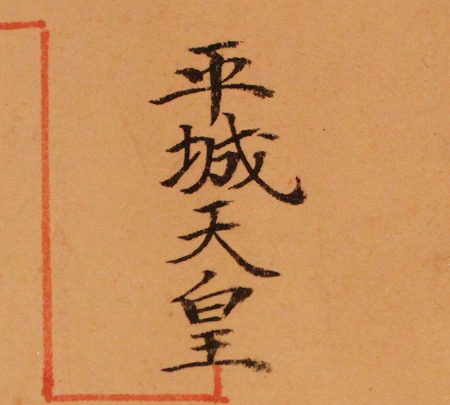 平城天皇